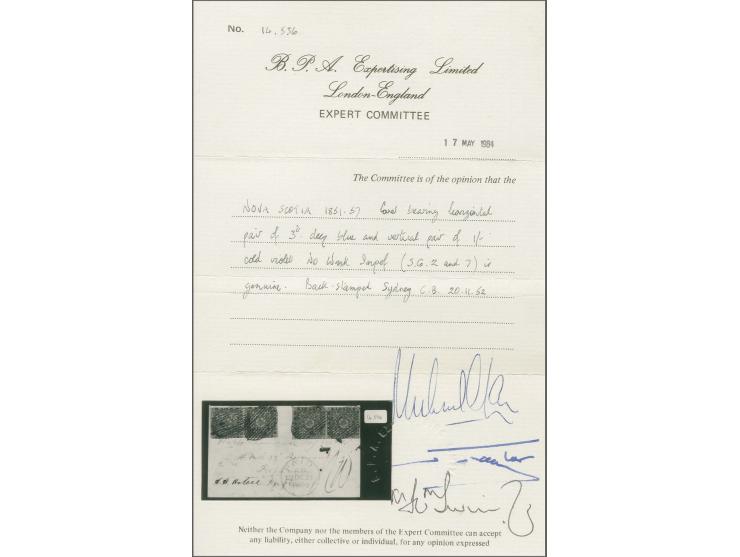 No. 14,556
B. P. A. Expertising Limited
London-England
EXPERT COMMITTEE
17 MAY 1984
The Committee is of the opinion that the
NOVA SCOTIA 1851-57 Cover bearing horizontal
pair of 3d deep blue and vertical pair of 1/-
cold violet No Wmk Imperf (S.G. 2 and 7) is
genuine. Back-stamped Sydney C.B. 20.11.52
Neither the Company nor the members of the Expert Committee can accept
any liability, either collective or individual, for any opinion expressed